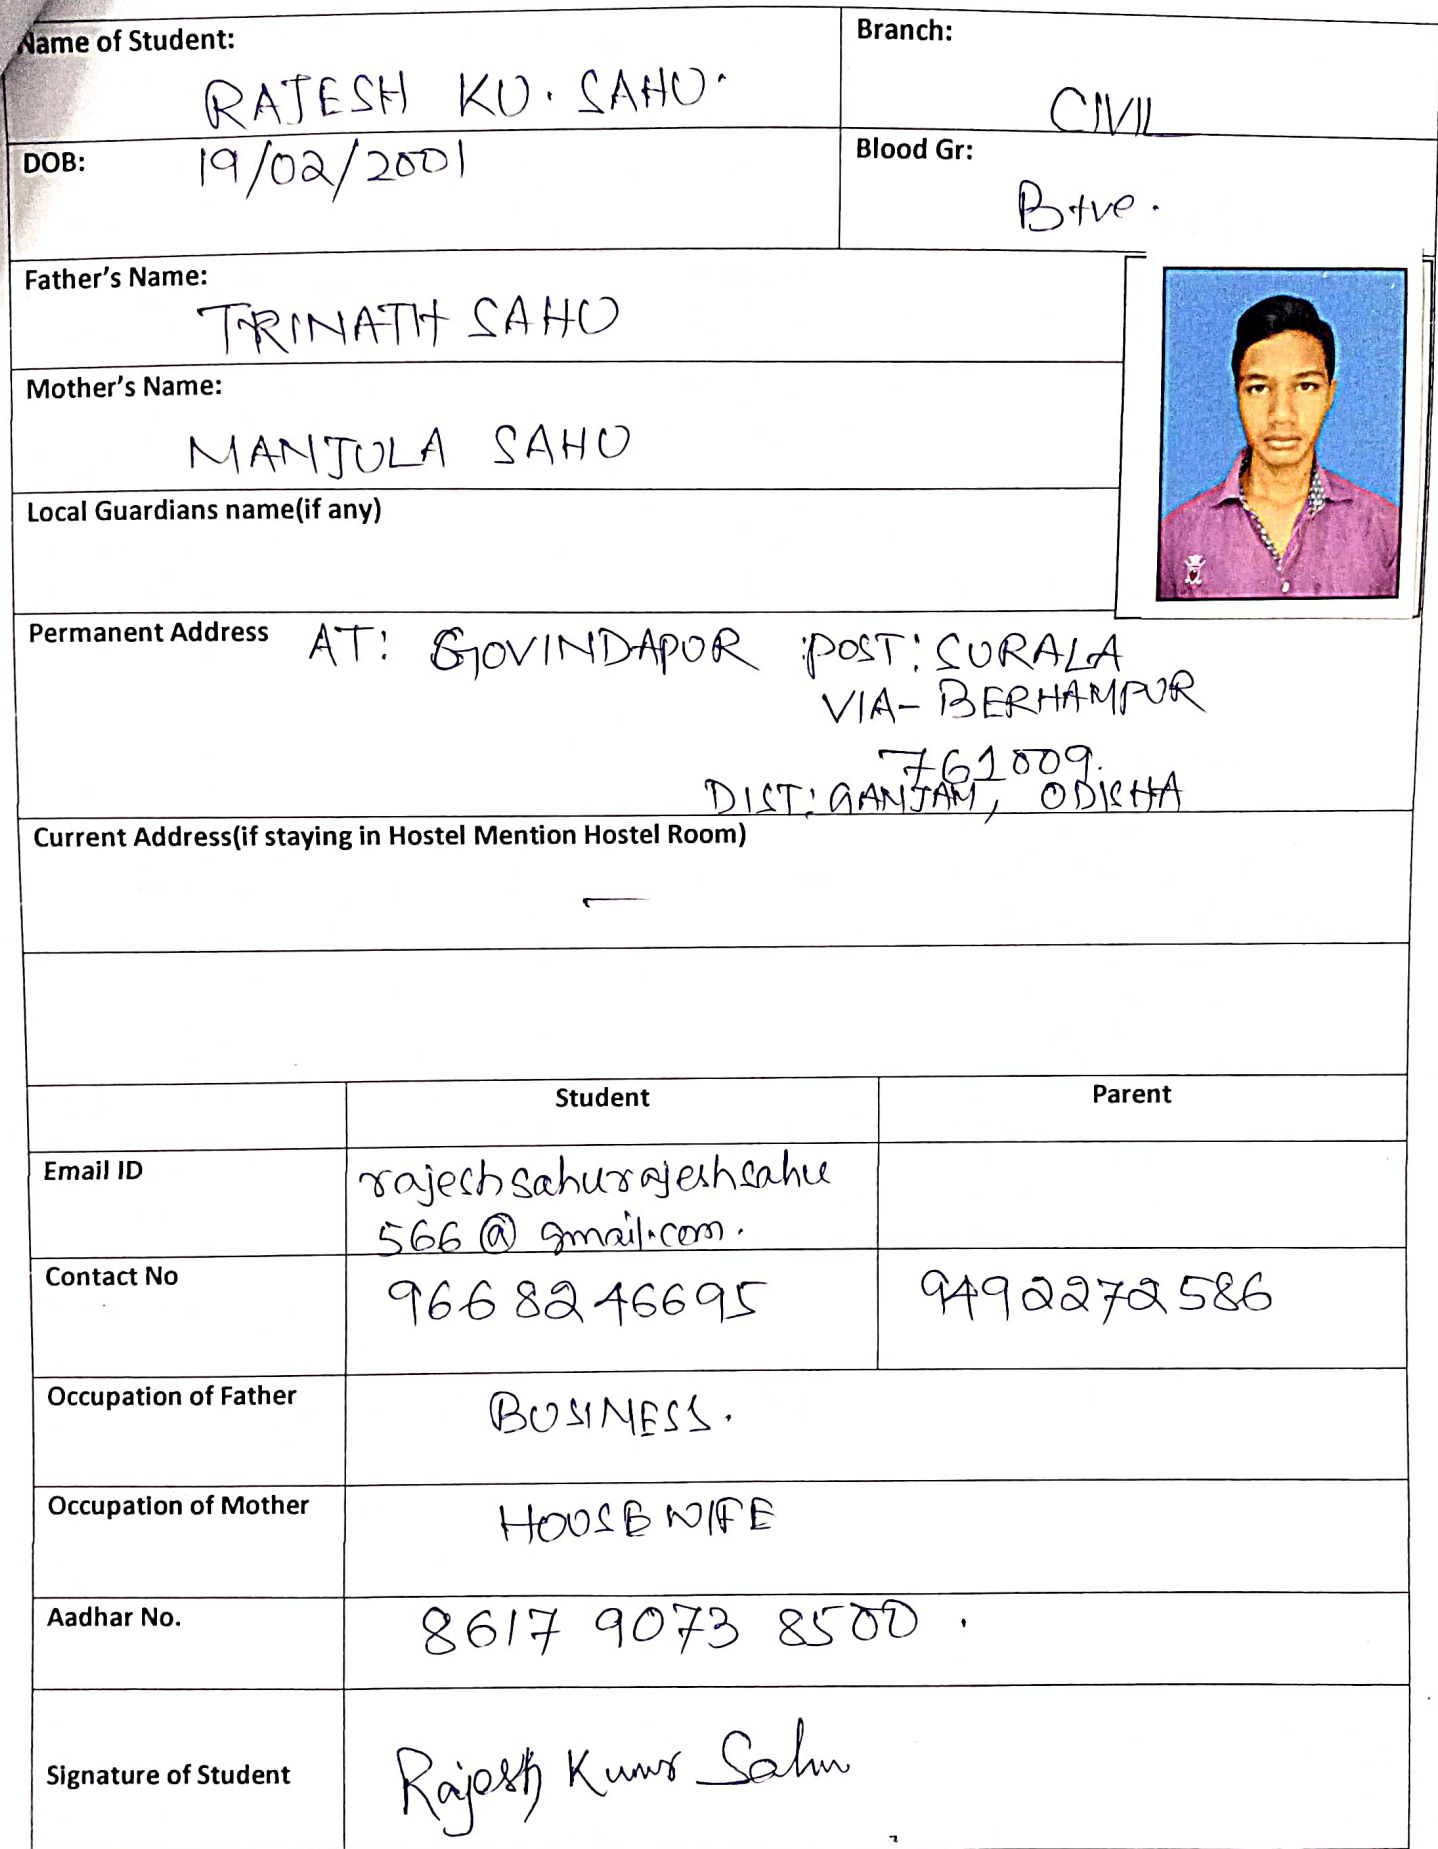 Name of Student:
RAJESH KU. SAHU.
Branch:
CIVIL
DOB: 19/02/2001
Blood Gr:
B+ve.
Father's Name:
TRINATH SAHU
Mother's Name:
MANJULA SAHU
Local Guardians name(if any)
Permanent Address AT: GOVINDAPUR POST: SURALA
VIA- BERHAMPUR
761009.
DIST: GANJAM, ODISHA
Current Address(if staying in Hostel Mention Hostel Room)
—
Student Parent
Email ID rajeshsahurajeshsahu
566@gmail.com.
Contact No 9668246695 9492272586
Occupation of Father BUSINESS.
Occupation of Mother HOUSEWIFE
Aadhar No. 8617 9073 8500.
Signature of Student Rajesh Kumar Sahu